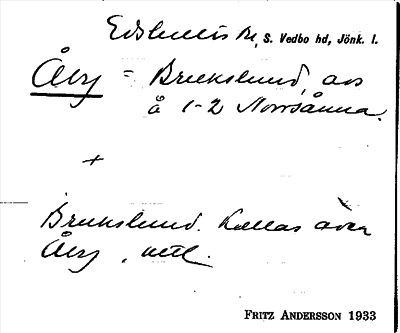 Edshults sn, S. Vedbo hd, Jönk. l.
Åby = Brukslund, avs
å 1-2 Norrsånna.
+
Brukslund. Kallas även
Åby, uttl.
FRITZ ANDERSSON 1933